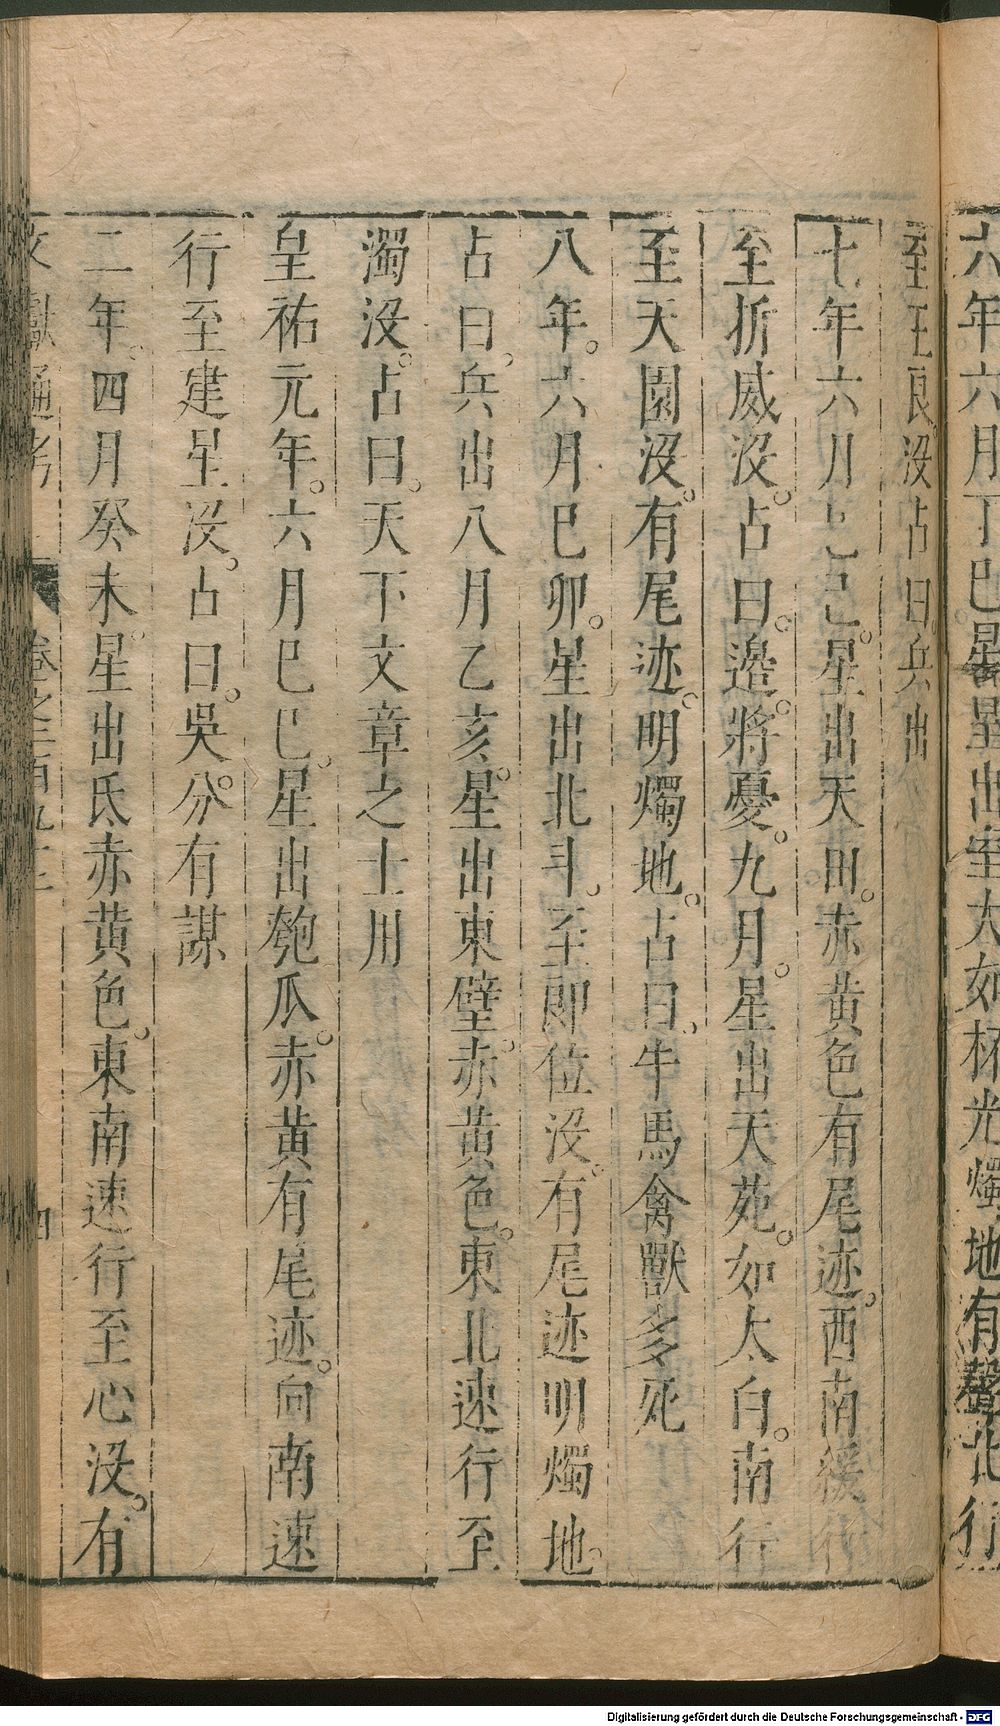 六年六月丁巳星晝出室大如杯光燭地有聲北行
至王良沒占曰兵出
七年六月乙巳星出天田赤黃色有尾迹西南緩行
至折威沒占曰邊將憂九月星出天苑如太白南行
至天園沒有尾迹明燭地占曰牛馬禽獸多死
八年六月巳卯星出北斗至即位沒有尾迹明燭地
占曰兵出八月乙亥星出東壁赤黃色東北速行至
濁沒占曰天下文章之士用
皇祐元年六月巳巳星出匏瓜赤黃有尾迹向南速
行至建星沒占曰吳分有謀
二年四月癸未星出氐赤黃色東南速行至心沒有
文獻通考 卷之二百九十二 四
Digitalisierung gefördert durch die Deutsche Forschungsgemeinschaft - DFG